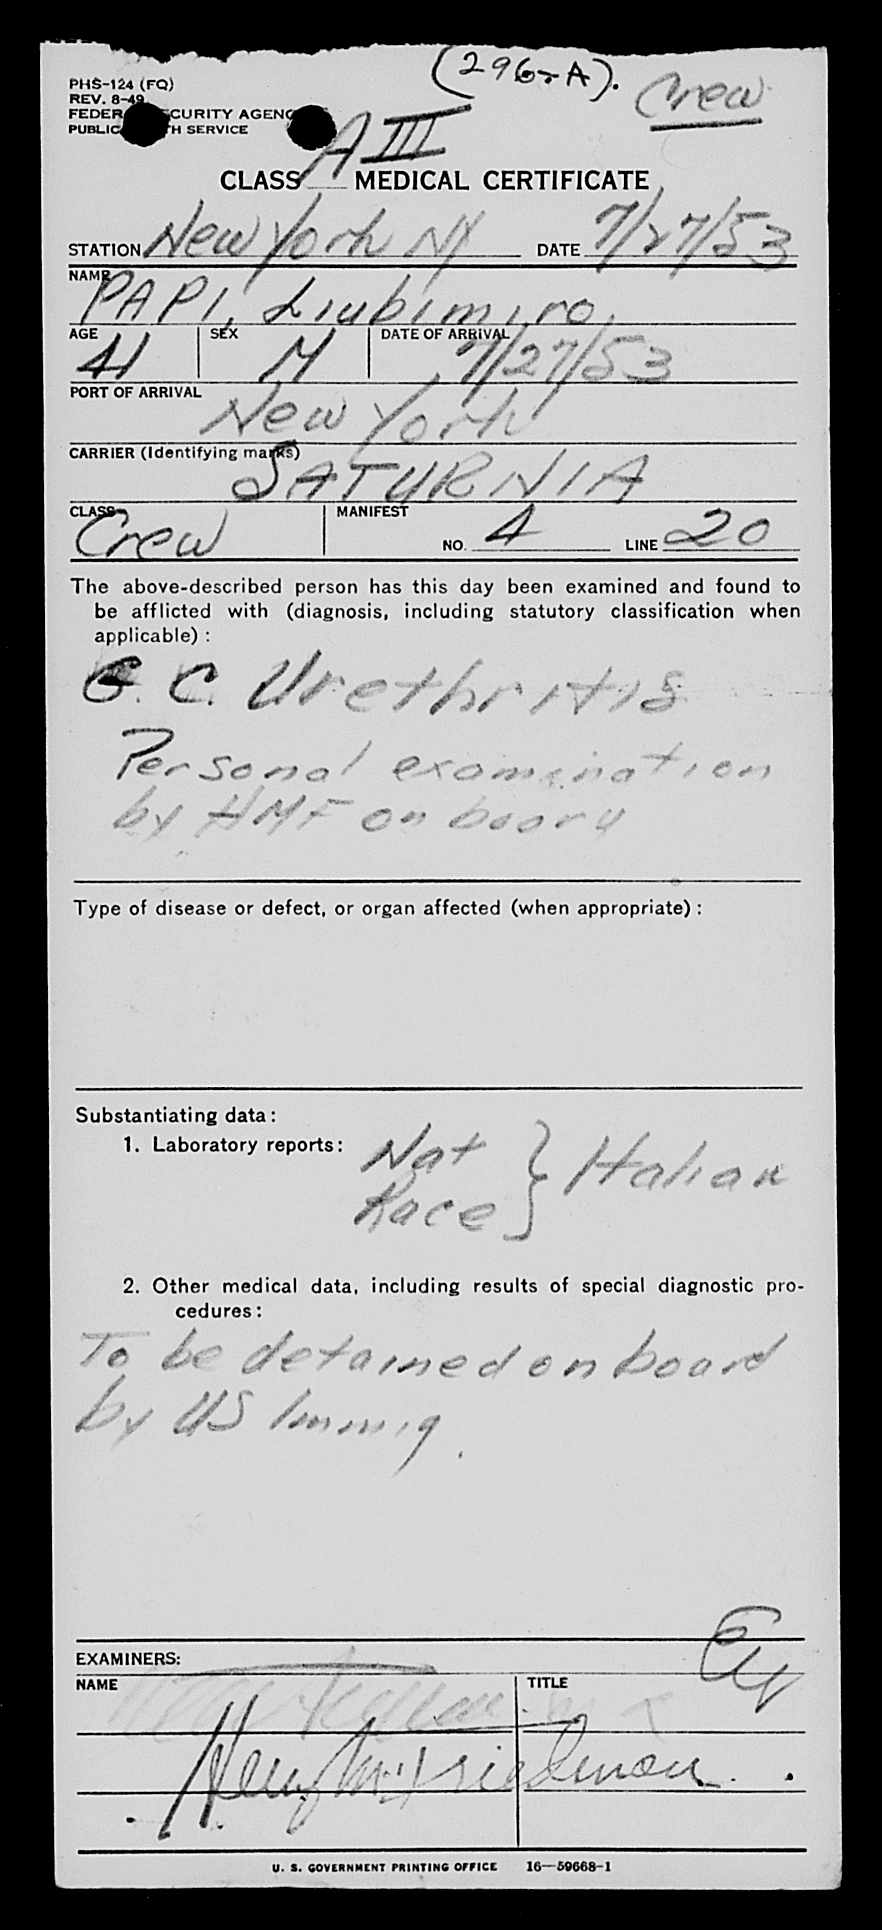 (296-A). Crew
PHS-124 (FQ)
REV. 8-49
FEDER CURITY AGENC
PUBLIC TH SERVICE
CLASS A III MEDICAL CERTIFICATE
STATION New York NY DATE 7/27/53
NAME
PAPI, Liubimiro
AGE SEX DATE OF ARRIVAL
41 M 7/27/53
PORT OF ARRIVAL
New York
CARRIER (Identifying marks)
SATURNIA
CLASS MANIFEST
Crew NO. 4 LINE 20
The above-described person has this day been examined and found to
be afflicted with (diagnosis, including statutory classification when
applicable):
G.C. Urethritis
Personal examination
by HMF on board
Type of disease or defect, or organ affected (when appropriate):
Substantiating data:
1. Laboratory reports: Nat
Race } Italian
2. Other medical data, including results of special diagnostic pro-
cedures:
To be detained on board
by US Immig.
EXAMINERS:
NAME TITLE
Henry M. Friedman
U. S. GOVERNMENT PRINTING OFFICE 16—59668-1